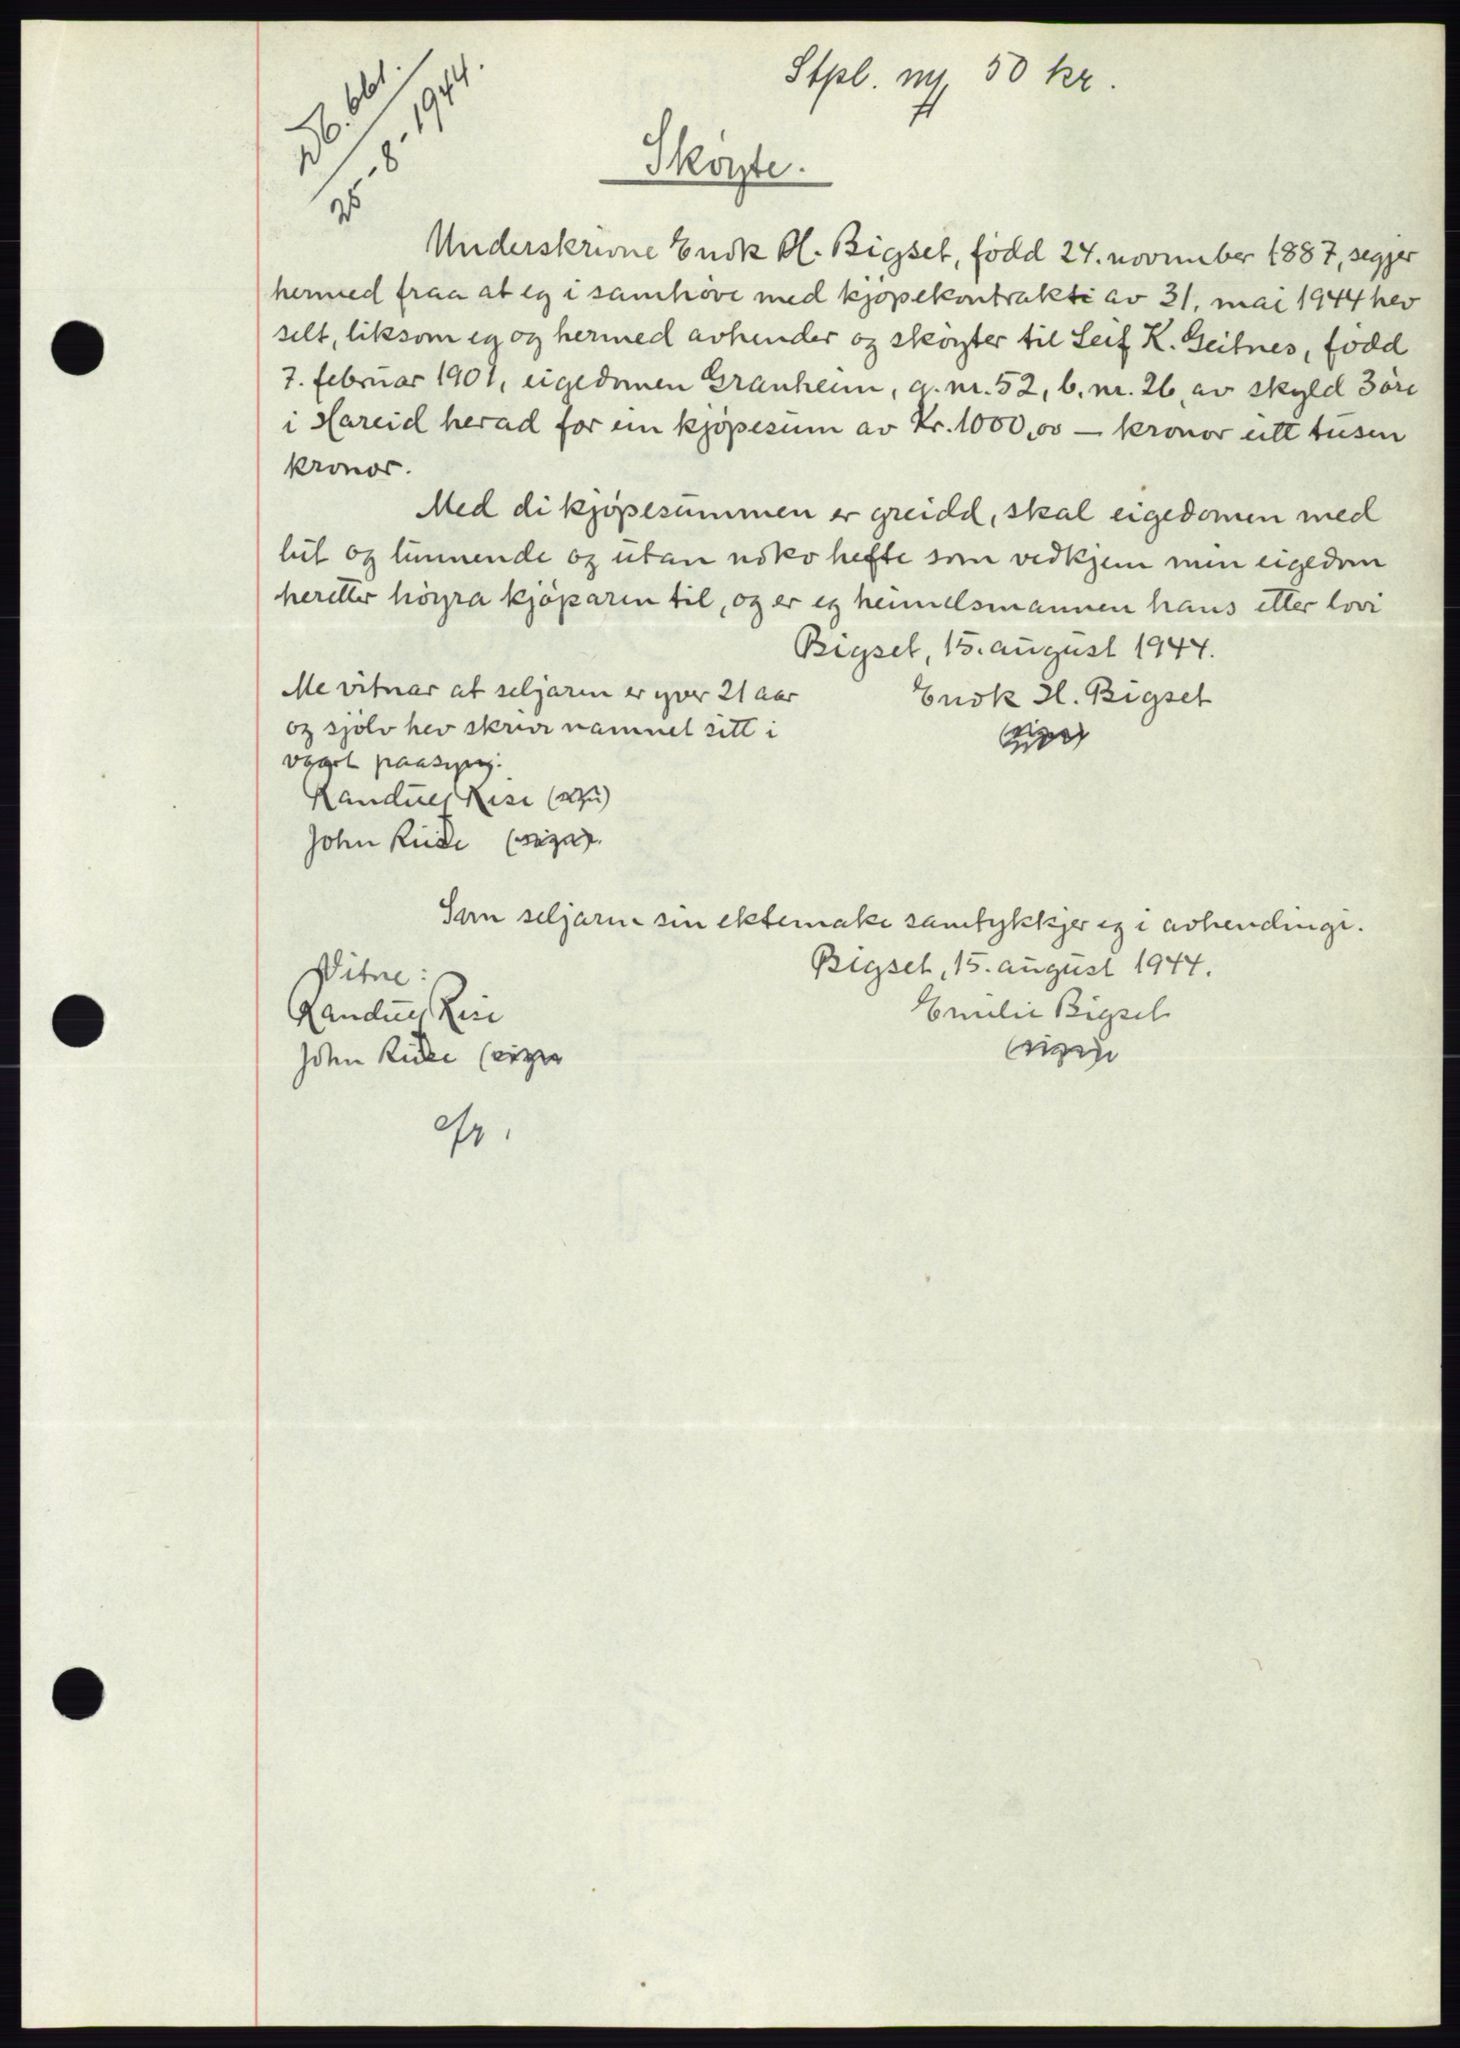 Db. 661.
25-8-1944.
Stpl. 50 kr.
Sköyte.
Underskrivne Enok H. Bigset, född 24. november 1887, segjer
hermed fraa at eg i samhöve med kjöpekontrakti av 31. mai 1944 hev
selt, liksom eg og hermed avhender og sköyter til Leif K. Geitnes, född
7. februar 1901, eigedomen Granheim, g.nr. 52, b.nr. 26, av skyld 3 öre
i Hareid herad for ein kjöpesum av Kr. 1000,00 — kronor eitt tusen
kronor.
Med di kjöpesummen er greidd, skal eigedomen med
lut og lunnende og utan noko hefte som vedkjem min eigedom
heretter höyra kjöparen til, og er eg heimelsmannen hans etter lovi
Bigset, 15. august 1944.
Me vitnar at seljaren er yver 21 aar
Enok H. Bigset
og sjölv hev skrive namnet sitt i
(sign)
vaart paasyn.
Rise (sign)
John Riise (sign).
Som seljaren sin ektemake samtykkjer eg i avhendingi.
Bigset, 15. august 1944.
Vitne:
Emilie Bigset
Rise
(sign)
John Riise (sign